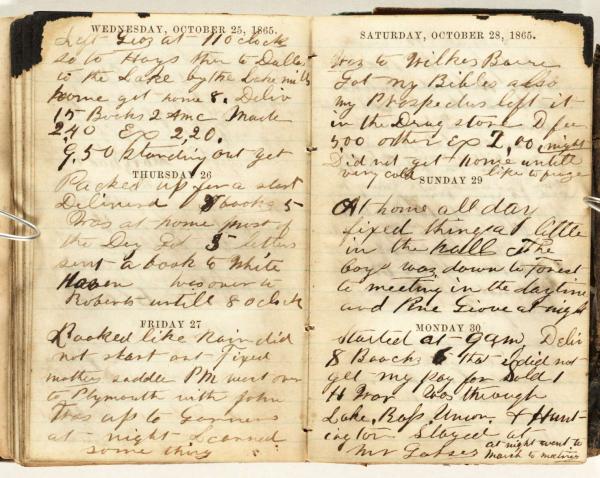 WEDNESDAY, OCTOBER 25, 1865.
Left Geoz at 11 Oclock
so to Hoys then to Dallas
to the Lake by the Lake mills
home got home 8. Deliv
15 Books 2 Amc Made
2,40 Ex 2,20.
9.50 standing out yet
THURSDAY 26
Packed up for a start
Deliverd books 5
Was at home most of
the Day 5 letters
sent a book to White
Haven was over to
Roberts untill 8 oclock
FRIDAY 27
Looked like Rain did
not start out fixed
mothers saddle P.M. went over
to Plymouth with John
Was up to
at night Learned
some thing
SATURDAY, OCTOBER 28, 1865.
Was to Wilkes Barre
Got my Bibles also
my Prospectus left it
in the Drug store D fee
5,00 other Ex 2,00, night
Did not get home untill
very cold like to
SUNDAY 29
At home all day
fixed things a little
in the hall The
boys was down to Forest
to meeting in the daytime
and Pine Grove at night
MONDAY 30
Started at 9 am, Deliv
8 Boocks that i did not
get my pay for Sold 1
H War Was through
Lake, Ross, Union & Hunt-
ington Stayed at
Mr at night went to
March to